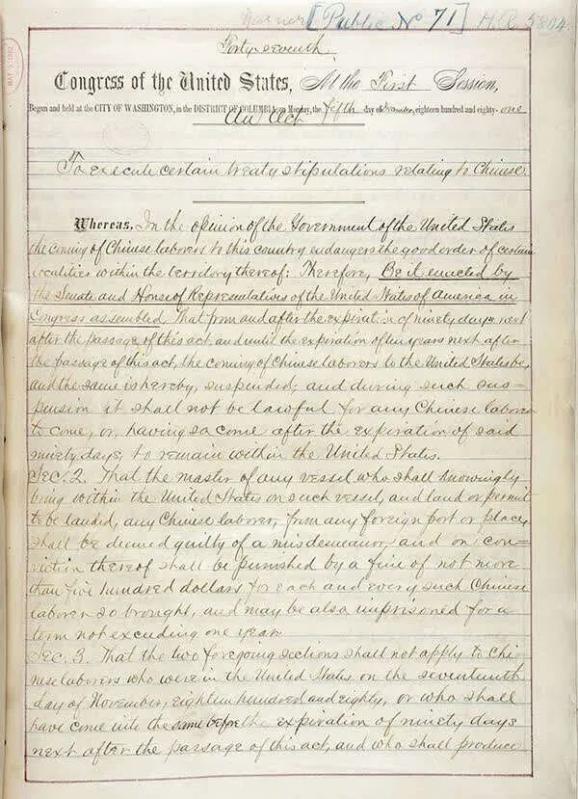 [Public No 71] H.R. 5804
Forty-seventh
Congress of the United States, At the First Session,
Begun and held at the CITY OF WASHINGTON, in the DISTRICT OF COLUMBIA, on Monday, the fifth day of December, eighteen hundred and eighty-one
An Act
To execute certain treaty stipulations relating to Chinese.
Whereas, In the opinion of the Government of the United States
the coming of Chinese laborers to this country endangers the good order of certain
localities within the territory thereof: Therefore, Be it enacted by
the Senate and House of Representatives of the United States of America in
Congress assembled, That from and after the expiration of ninety days next
after the passage of this act, and until the expiration of ten years next after
the passage of this act, the coming of Chinese laborers to the United States be,
and the same is hereby, suspended; and during such sus=
pension it shall not be lawful for any Chinese laborer
to come, or, having so come after the expiration of said
ninety days, to remain within the United States.
Sec. 2. That the master of any vessel who shall knowingly
bring within the United States on such vessel, and land or permit
to be landed, any Chinese laborer, from any foreign port or place,
shall be deemed guilty of a misdemeanor, and on con=
viction thereof shall be punished by a fine of not more
than five hundred dollars for each and every such Chinese
laborer so brought, and may be also imprisoned for a
term not exceeding one year.
Sec. 3. That the two foregoing sections shall not apply to Chi
nese laborers who were in the United States on the seventeenth
day of November, eighteen hundred and eighty, or who shall
have come into the same before the expiration of ninety days
next after the passage of this act, and who shall produce